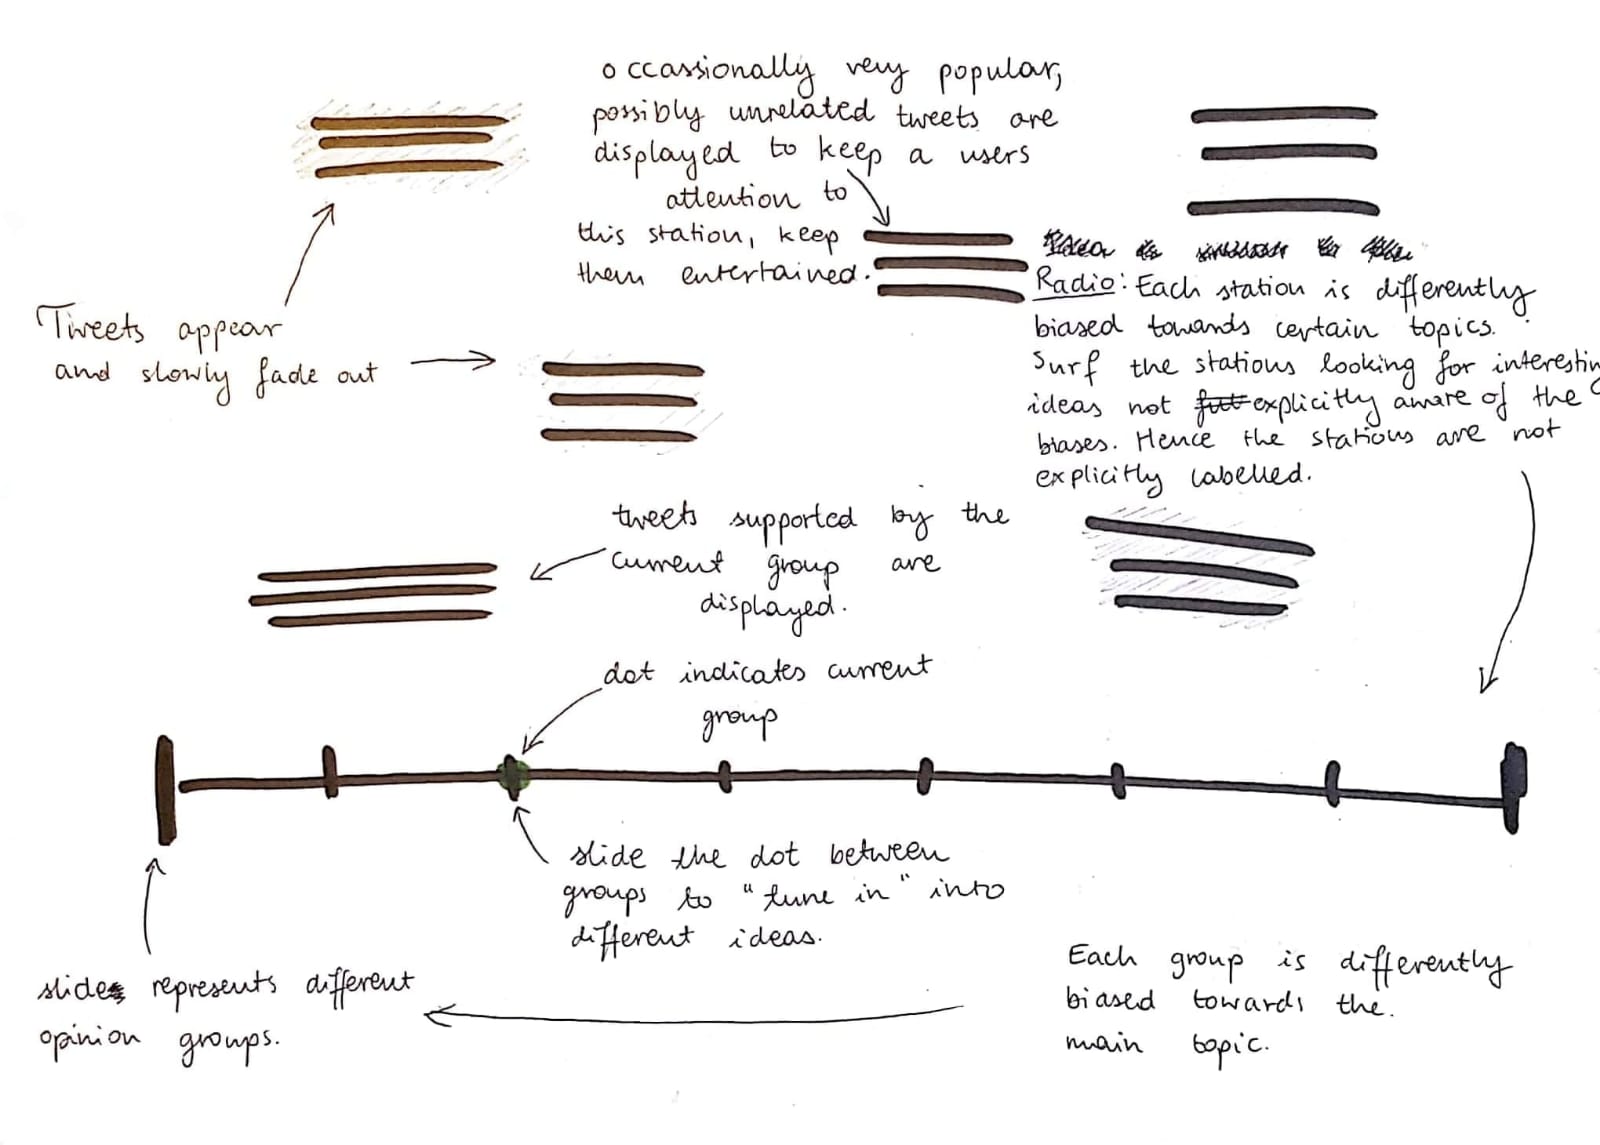 occassionally very popular,
possibly unrelated tweets are
displayed to keep a users
attention to
this station, keep
them entertained.
Tweets appear
and slowly fade out
Radio: Each station is differently
biased towards certain topics.
Surf the stations looking for interestin
ideas not explicitly aware of the
biases. Hence the stations are not
explicitly labelled.
tweets supported by the
current group are
displayed.
dot indicates current
group
slide the dot between
groups to "tune in" into
different ideas.
slide represents different
opinion groups.
Each group is differently
biased towards the.
main topic.